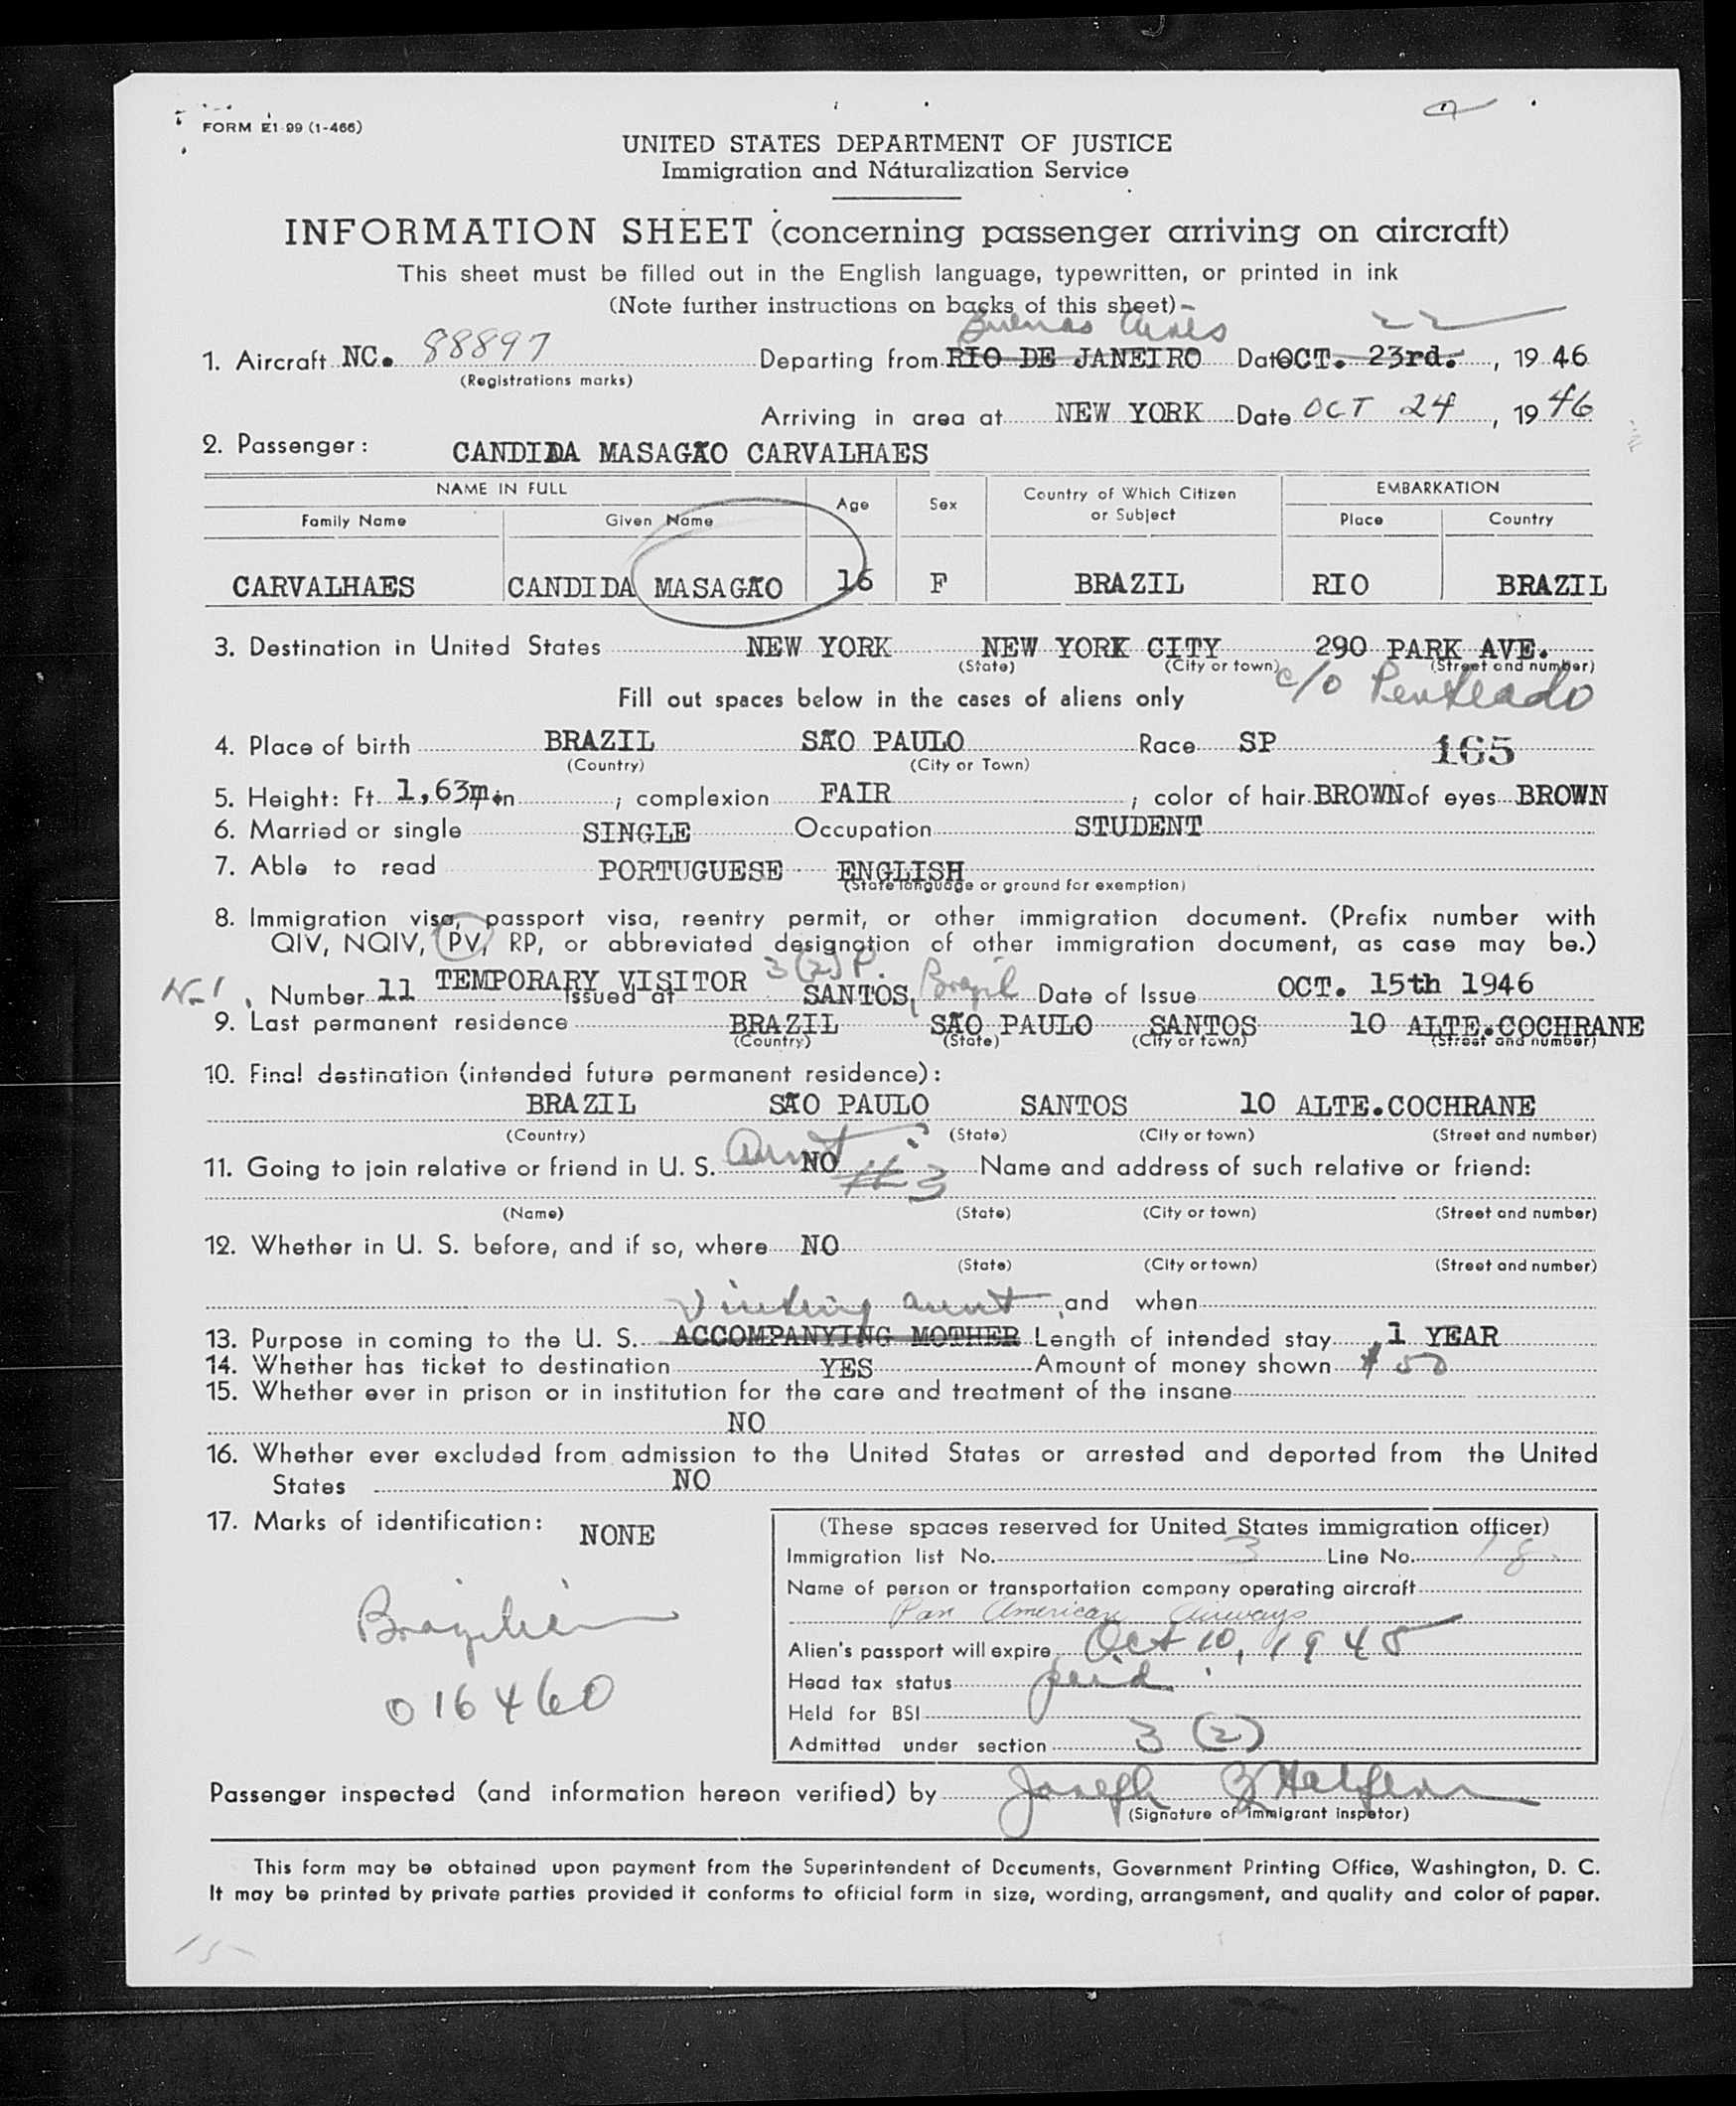 FORM E1-99 (1-466)
UNITED STATES DEPARTMENT OF JUSTICE
Immigration and Naturalization Service
INFORMATION SHEET (concerning passenger arriving on aircraft)
This sheet must be filled out in the English language, typewritten, or printed in ink
(Note further instructions on backs of this sheet)
Buenos Aires 22
1. Aircraft NC. 88897 Departing from RIO DE JANEIRO Date OCT. 23rd. , 19 46
(Registrations marks)
Arriving in area at NEW YORK Date OCT 24 , 19 46
2. Passenger: CANDIDA MASAGÃO CARVALHAES
NAME IN FULL Age Sex Country of Which Citizen or Subject EMBARKATION
Family Name Given Name Place Country
CARVALHAES CANDIDA MASAGÃO 16 F BRAZIL RIO BRAZIL
3. Destination in United States NEW YORK NEW YORK CITY 290 PARK AVE.
(State) (City or town) (Street and number)
c/o Penteado
Fill out spaces below in the cases of aliens only
4. Place of birth BRAZIL SÃO PAULO Race SP 165
(Country) (City or Town)
5. Height: Ft. 1,63m. in ; complexion FAIR ; color of hair BROWN of eyes BROWN
6. Married or single SINGLE Occupation STUDENT
7. Able to read PORTUGUESE ENGLISH
(State language or ground for exemption)
8. Immigration visa, passport visa, reentry permit, or other immigration document. (Prefix number with
QIV, NQIV, PV, RP, or abbreviated designation of other immigration document, as case may be.)
3(2) P.
Number 11 TEMPORARY VISITOR Issued at SANTOS, Brazil Date of Issue OCT. 15th 1946
9. Last permanent residence BRAZIL SÃO PAULO SANTOS 10 ALTE.COCHRANE
(Country) (State) (City or town) (Street and number)
10. Final destination (intended future permanent residence):
BRAZIL SÃO PAULO SANTOS 10 ALTE.COCHRANE
(Country) (State) (City or town) (Street and number)
11. Going to join relative or friend in U. S. Aunt NO #3 Name and address of such relative or friend:
(Name) (State) (City or town) (Street and number)
12. Whether in U. S. before, and if so, where NO
(State) (City or town) (Street and number)
Visiting aunt , and when
13. Purpose in coming to the U. S. ACCOMPANYING MOTHER Length of intended stay 1 YEAR
14. Whether has ticket to destination YES Amount of money shown $ 50
15. Whether ever in prison or in institution for the care and treatment of the insane
NO
16. Whether ever excluded from admission to the United States or arrested and deported from the United
States NO
17. Marks of identification: NONE
Brazilian
016460
(These spaces reserved for United States immigration officer)
Immigration list No. 3 Line No. 18
Name of person or transportation company operating aircraft
Pan American Airways
Alien's passport will expire Oct 10, 1948
Head tax status paid
Held for BSI
Admitted under section 3 (2)
Passenger inspected (and information hereon verified) by Joseph
(Signature of immigrant inspector)
This form may be obtained upon payment from the Superintendent of Documents, Government Printing Office, Washington, D. C.
It may be printed by private parties provided it conforms to official form in size, wording, arrangement, and quality and color of paper.
15